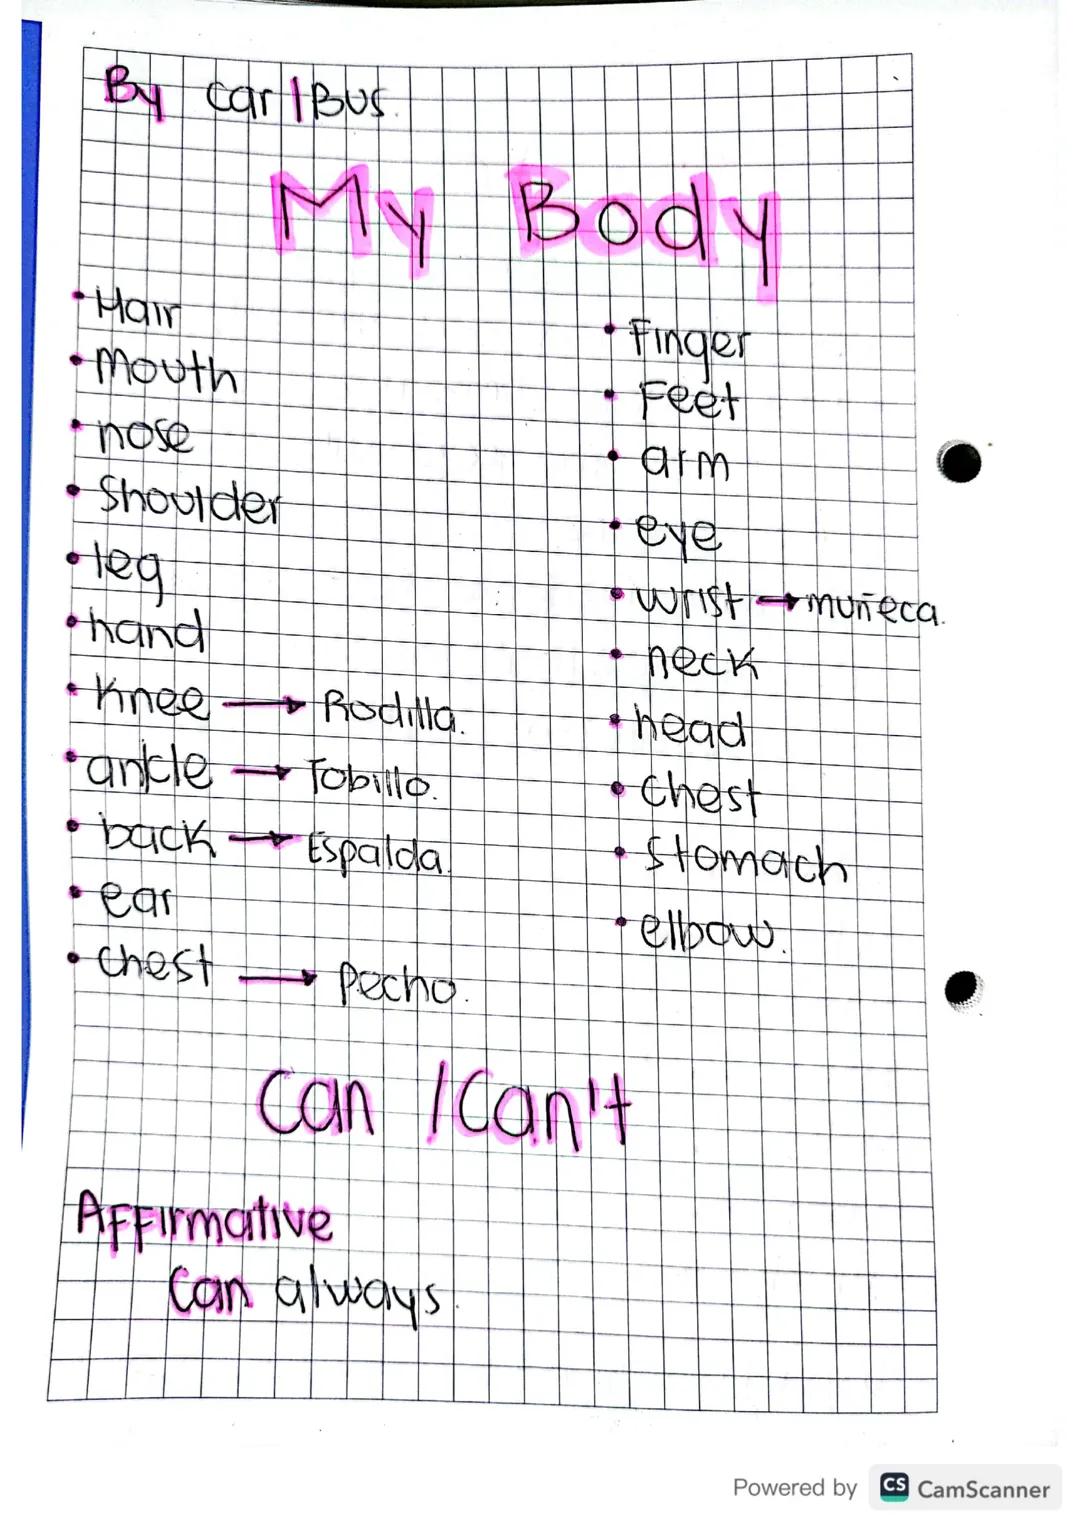 By car / Bus.
My Body
• Hair
• Mouth
• nose
• Shoulder
• leg
• hand
• Knee → Rodilla.
• ankle → Tobillo.
• back → Espalda.
• ear
• chest → Pecho.
• Finger
• Feet
• arm
• eye
• wrist → muñeca.
• neck
• head
• chest
• stomach
• elbow.
Can / Can't
Affirmative
Can always.
Powered by CS CamScanner